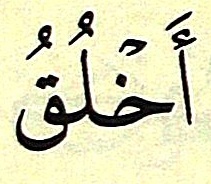 أَخْلُقُ